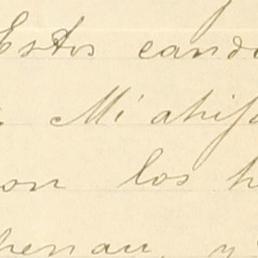 Estos cand
Mi ahij
on los h
henau, y